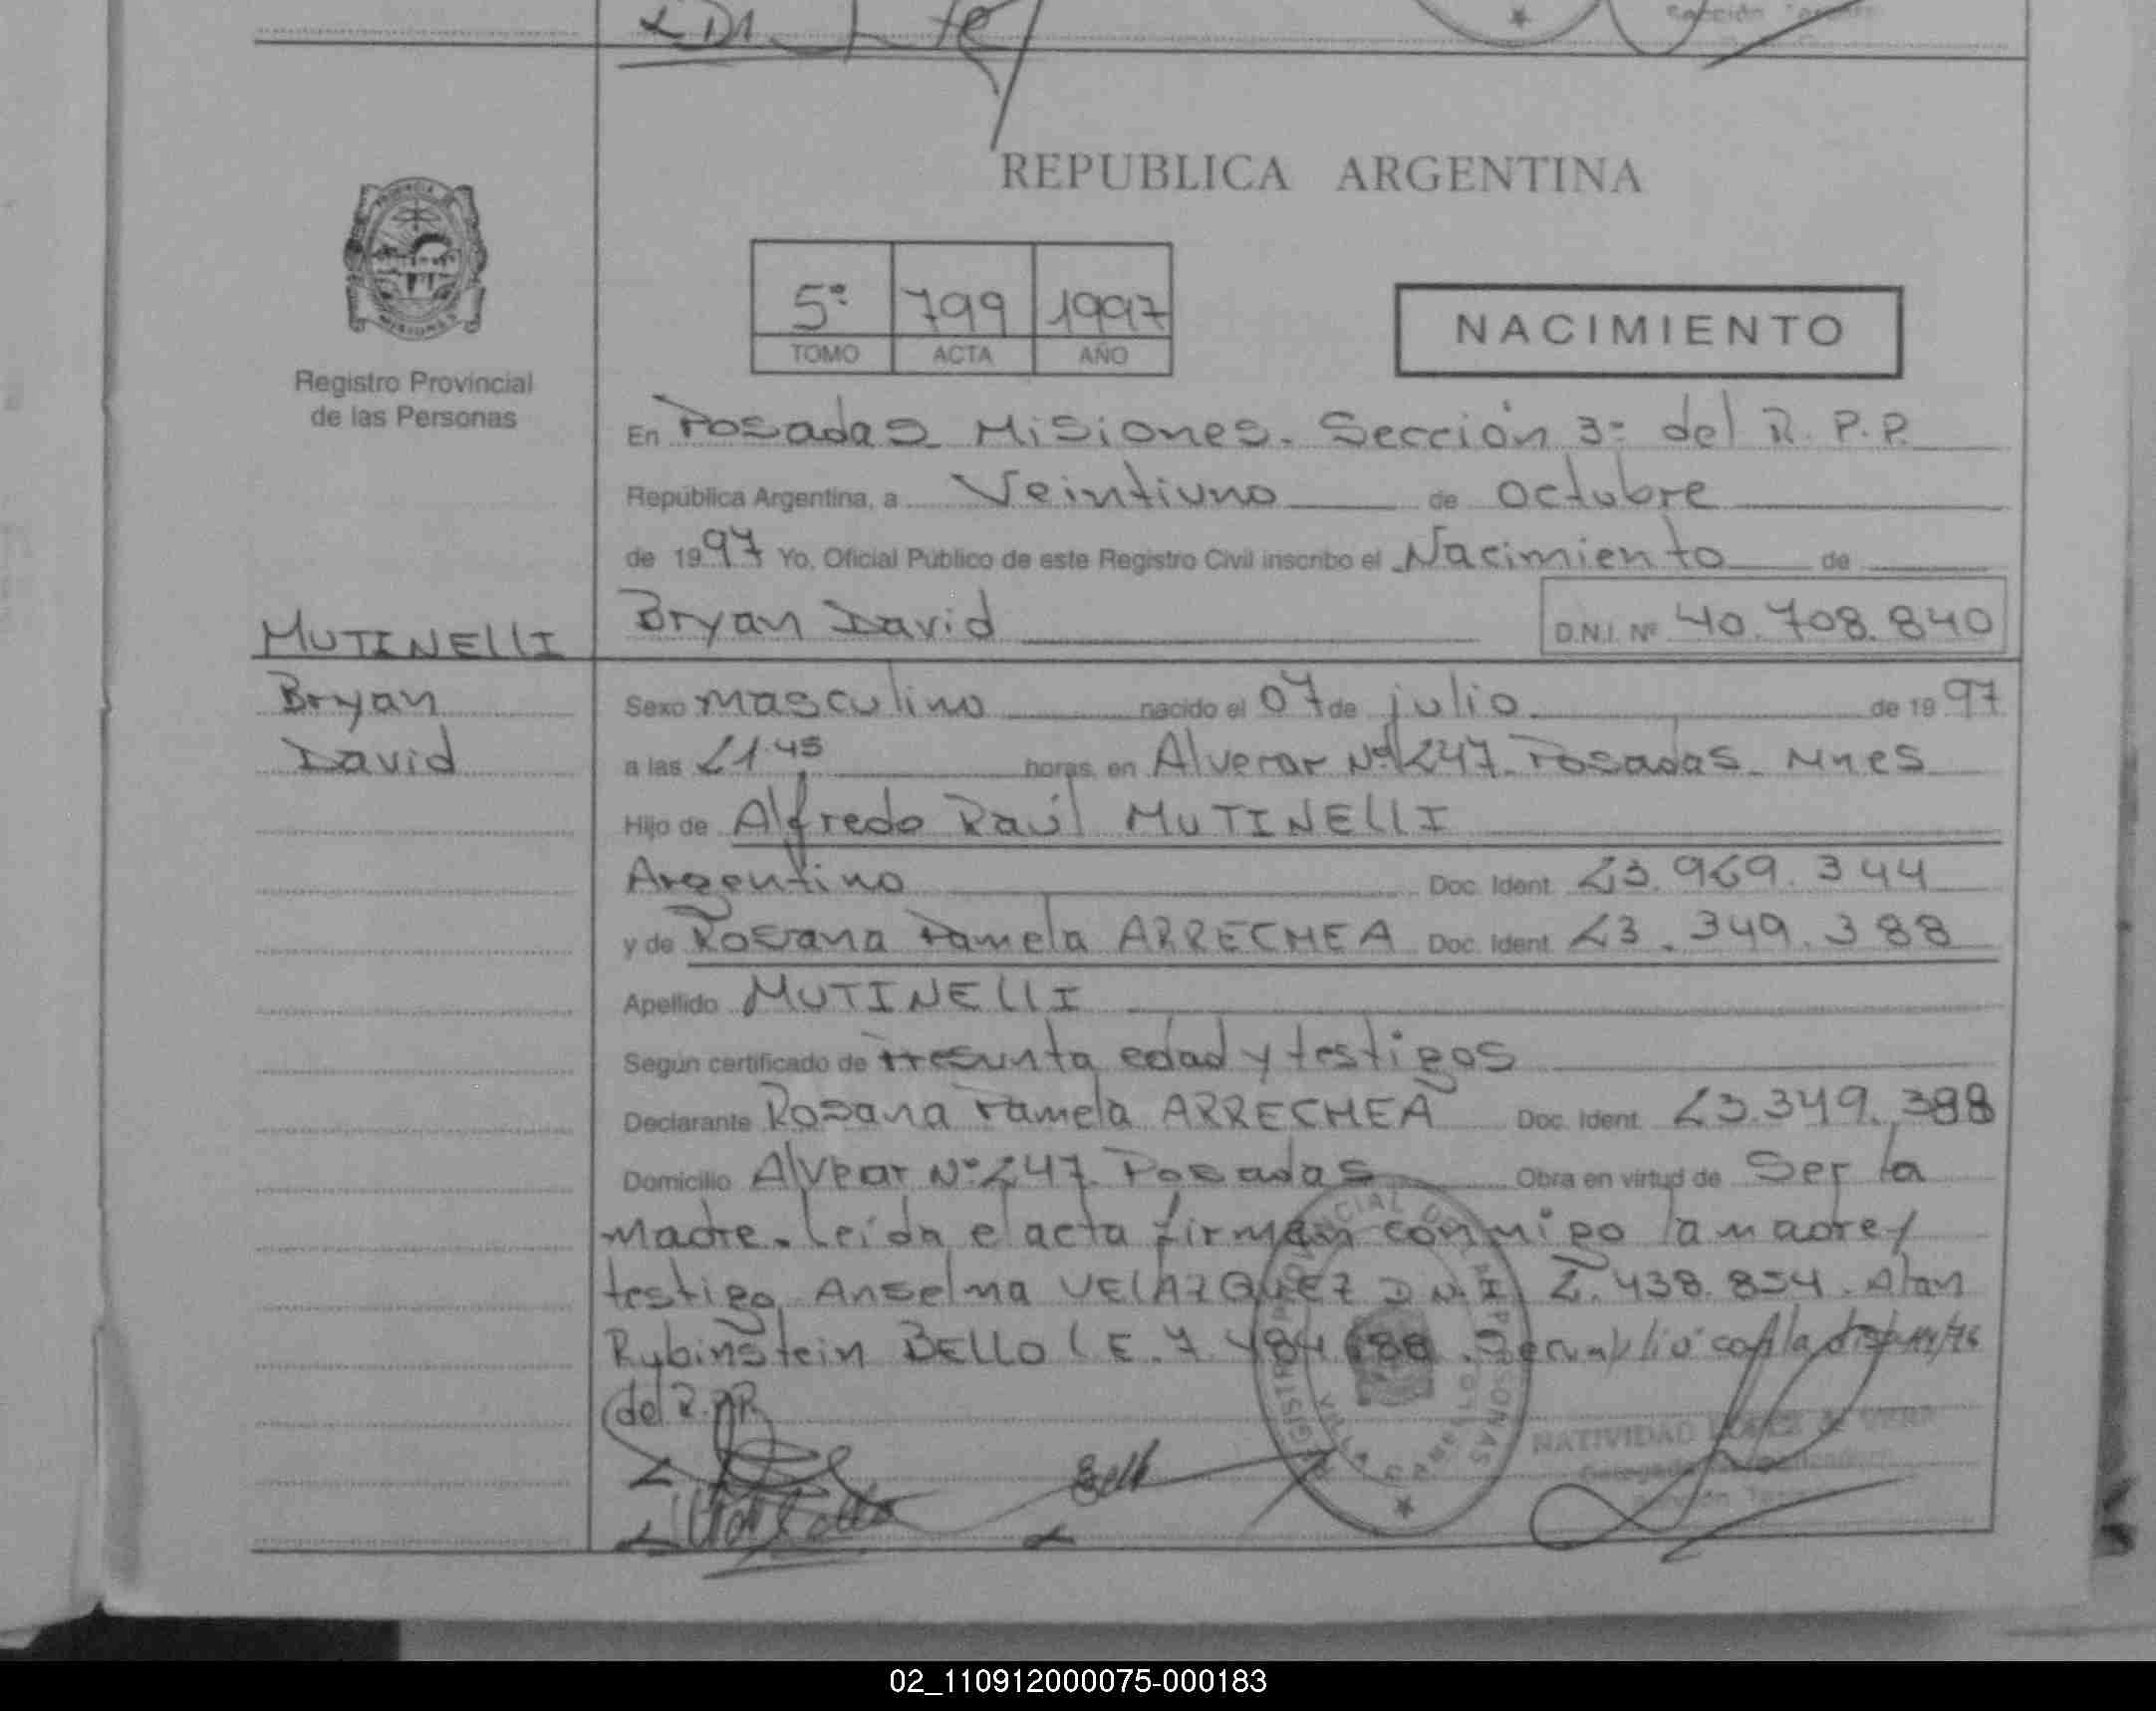 Sección
REPUBLICA ARGENTINA
PROVINCIA
MISIONES
5º 799 1997
TOMO ACTA AÑO
NACIMIENTO
Registro Provincial
de las Personas
En Posadas Misiones. Sección 3º del R. P. P.
República Argentina, a Veintiuno de octubre
de 1997 Yo, Oficial Público de este Registro Civil inscribo el Nacimiento de
MUTINELLI Bryan David D.N.I. Nº 40.708.840
Bryan Sexo masculino nacido el 07 de julio de 1997
David a las 21.45 horas, en Alverar Nº 1247. Posadas. Mnes
Hijo de Alfredo Raúl MUTINELLI
Argentino Doc. Ident. 23.969.344
y de Rosana Pamela ARRECHEA Doc. Ident. 23.349.388
Apellido MUTINELLI
Según certificado de Presunta edad y testigos
Declarante Rosana Pamela ARRECHEA Doc. Ident. 23.349.388
Domicilio Alvear Nº 247. Posadas Obra en virtud de Ser la
madre. Leída el acta firman conmigo la madre y
testigo, Anselma VELAZQUEZ D.N.I. 2.438.854. Alan
Rybinstein BELLO L E. 7.484.688. Se cumplió con la disp. /76
del R.P.P.
NATIVIDAD VERA
02_110912000075-000183